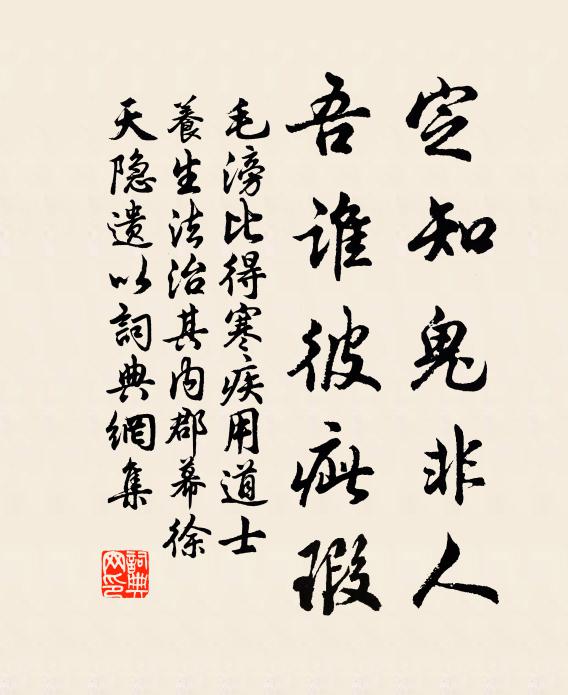 定知鬼非人
吾谁彼疵瑕
毛滂比得寒疾用道士
養生法治其内郡幕徐
天隐遗以詞典網集
詞典網印